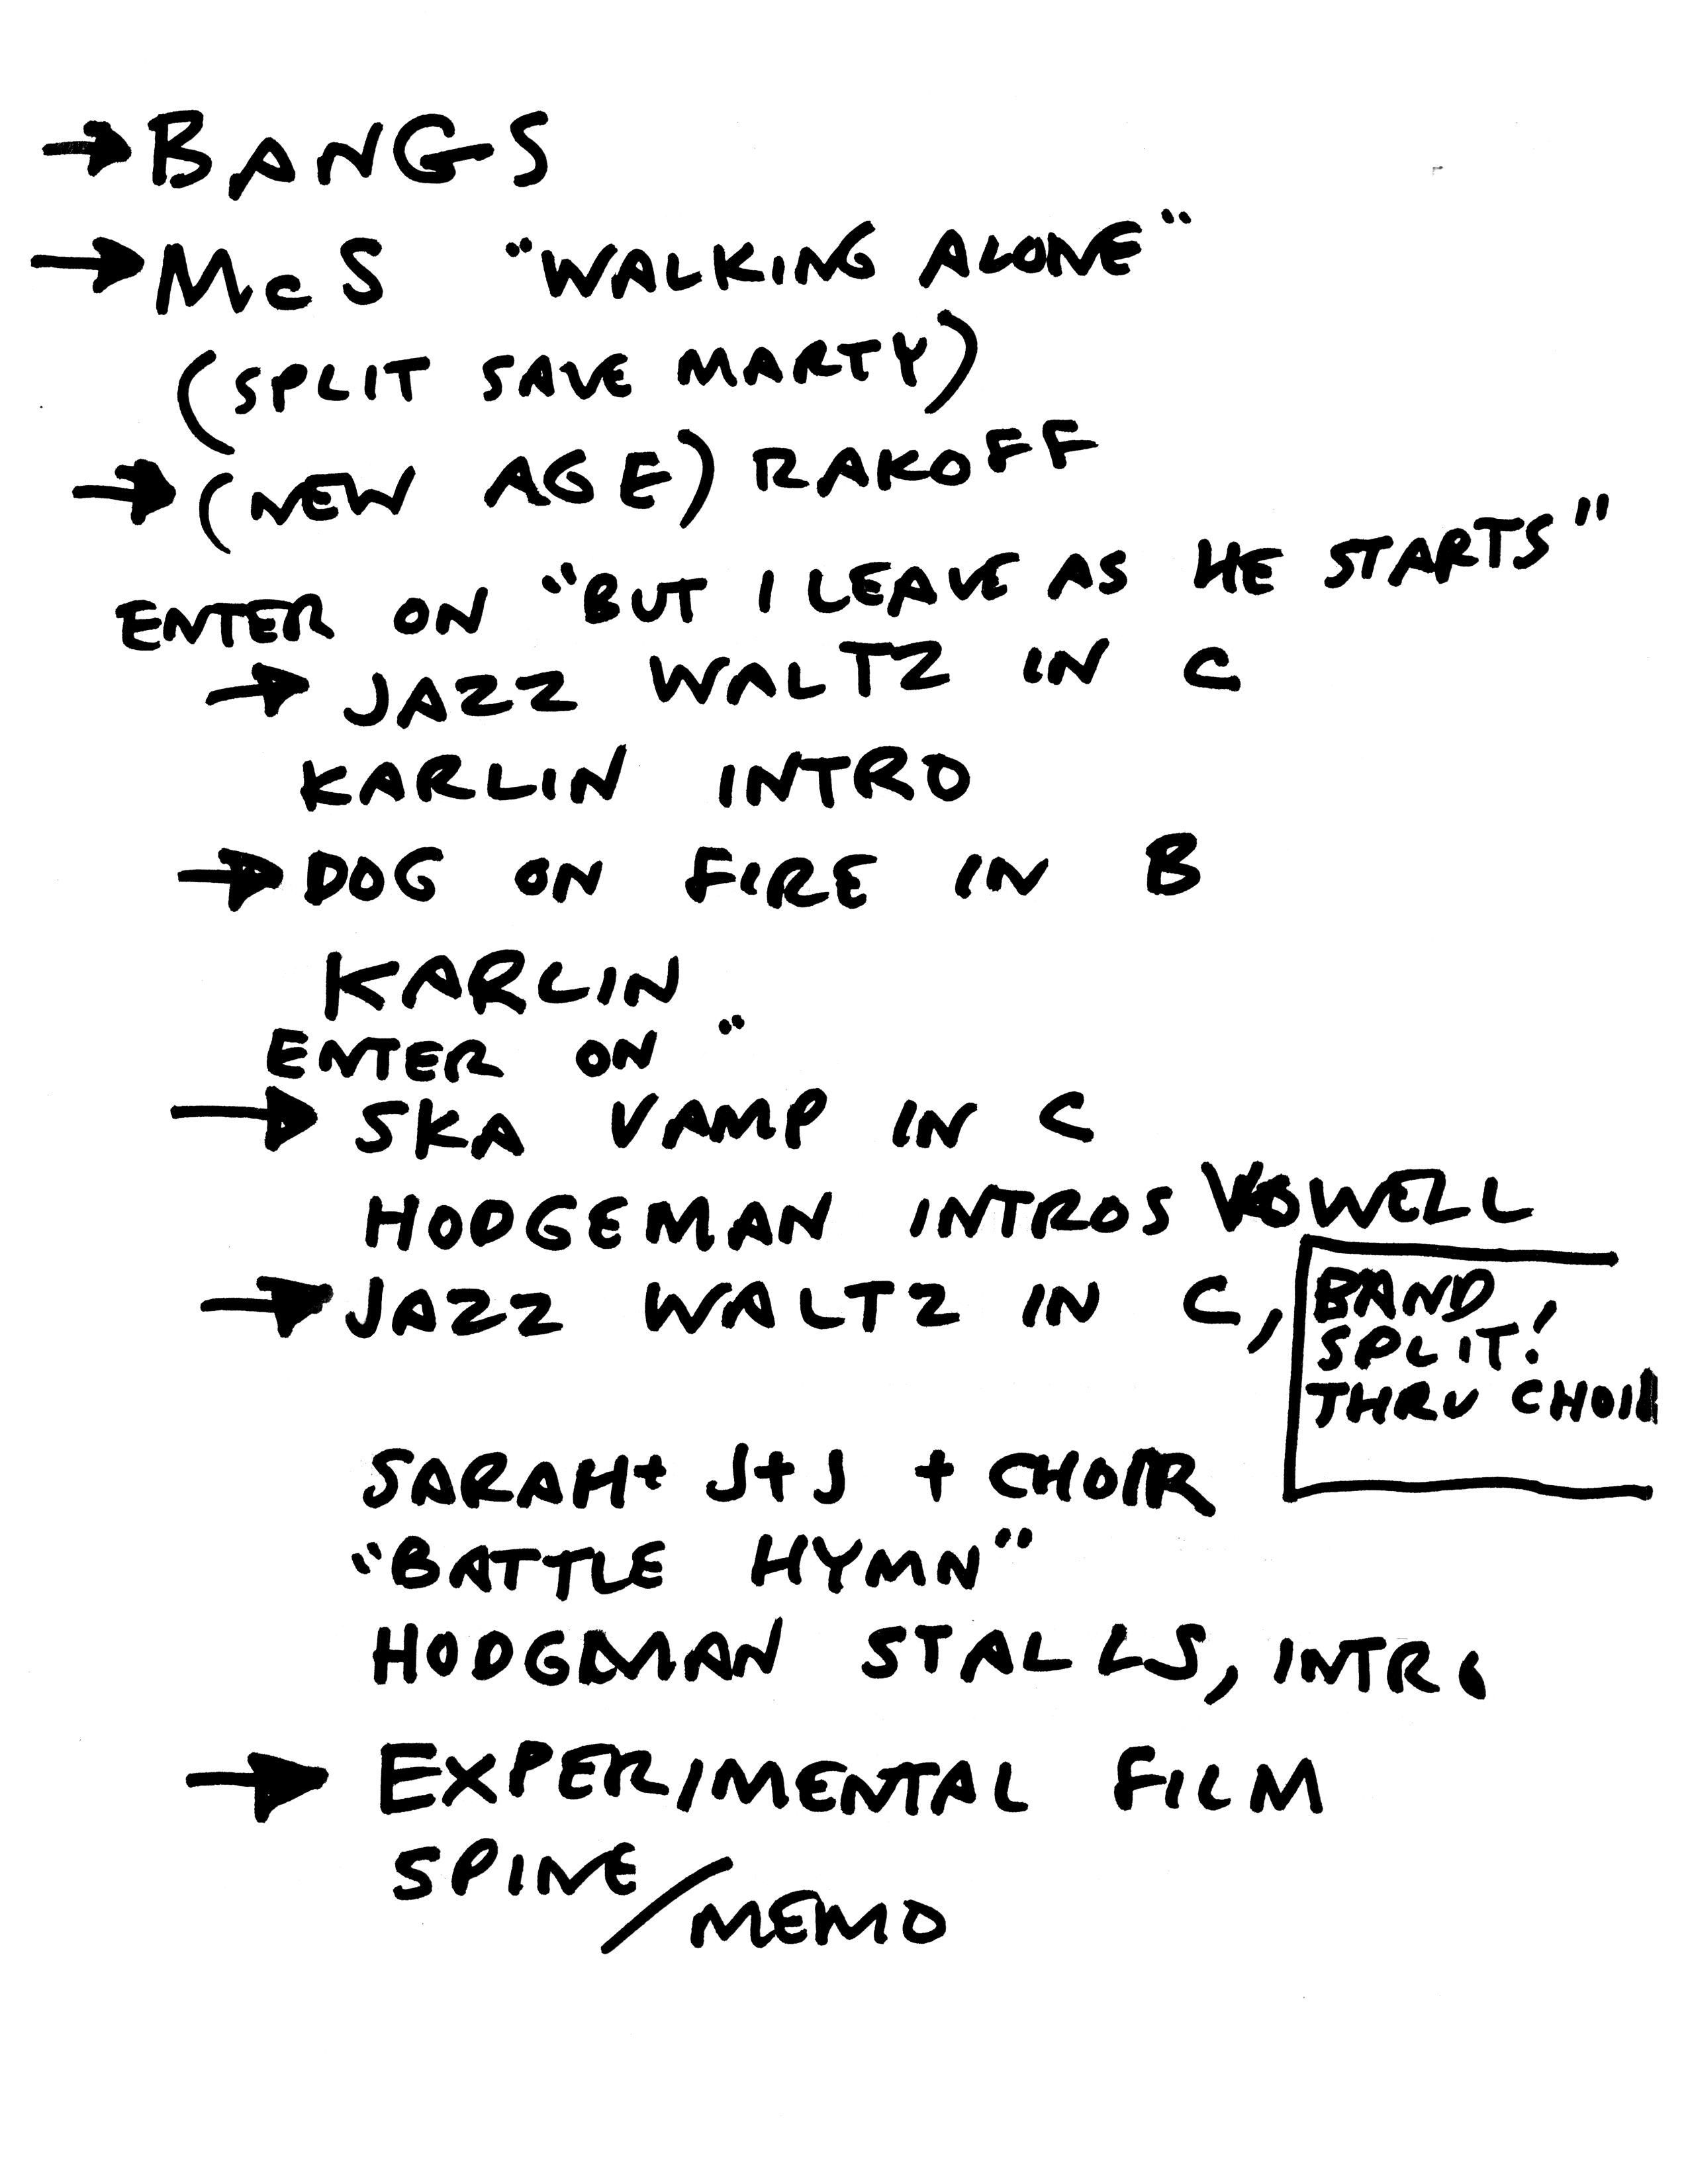 → BANGS
→ McS "WALKING ALONE"
(SPLIT SAVE MARTY)
→ (NEW AGE) RAKOFF
ENTER ON "BUT I LEAVE AS HE STARTS"
→ JAZZ WALTZ IN C
KARLIN INTRO
→ DOG ON FIRE IN B
KARLIN
ENTER ON "
→ SKA VAMP IN C
HODGEMAN INTROS VOWELL
→ JAZZ WALTZ IN C,
BAND
SPLIT!
THRU CHOIR
SARAH + J+J + CHOIR
"BATTLE HYMN"
HODGMAN STALLS, INTRO
→ EXPERIMENTAL FILM
SPINE/MEMO